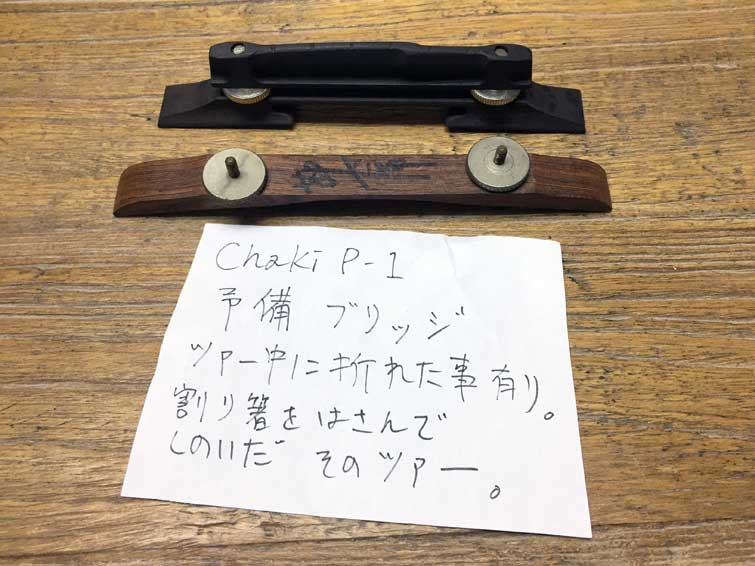 Chaki P-1
予備 ブリッジ
ツアー中に折れた事有り。
割り箸をはさんで
しのいだ そのツアー。